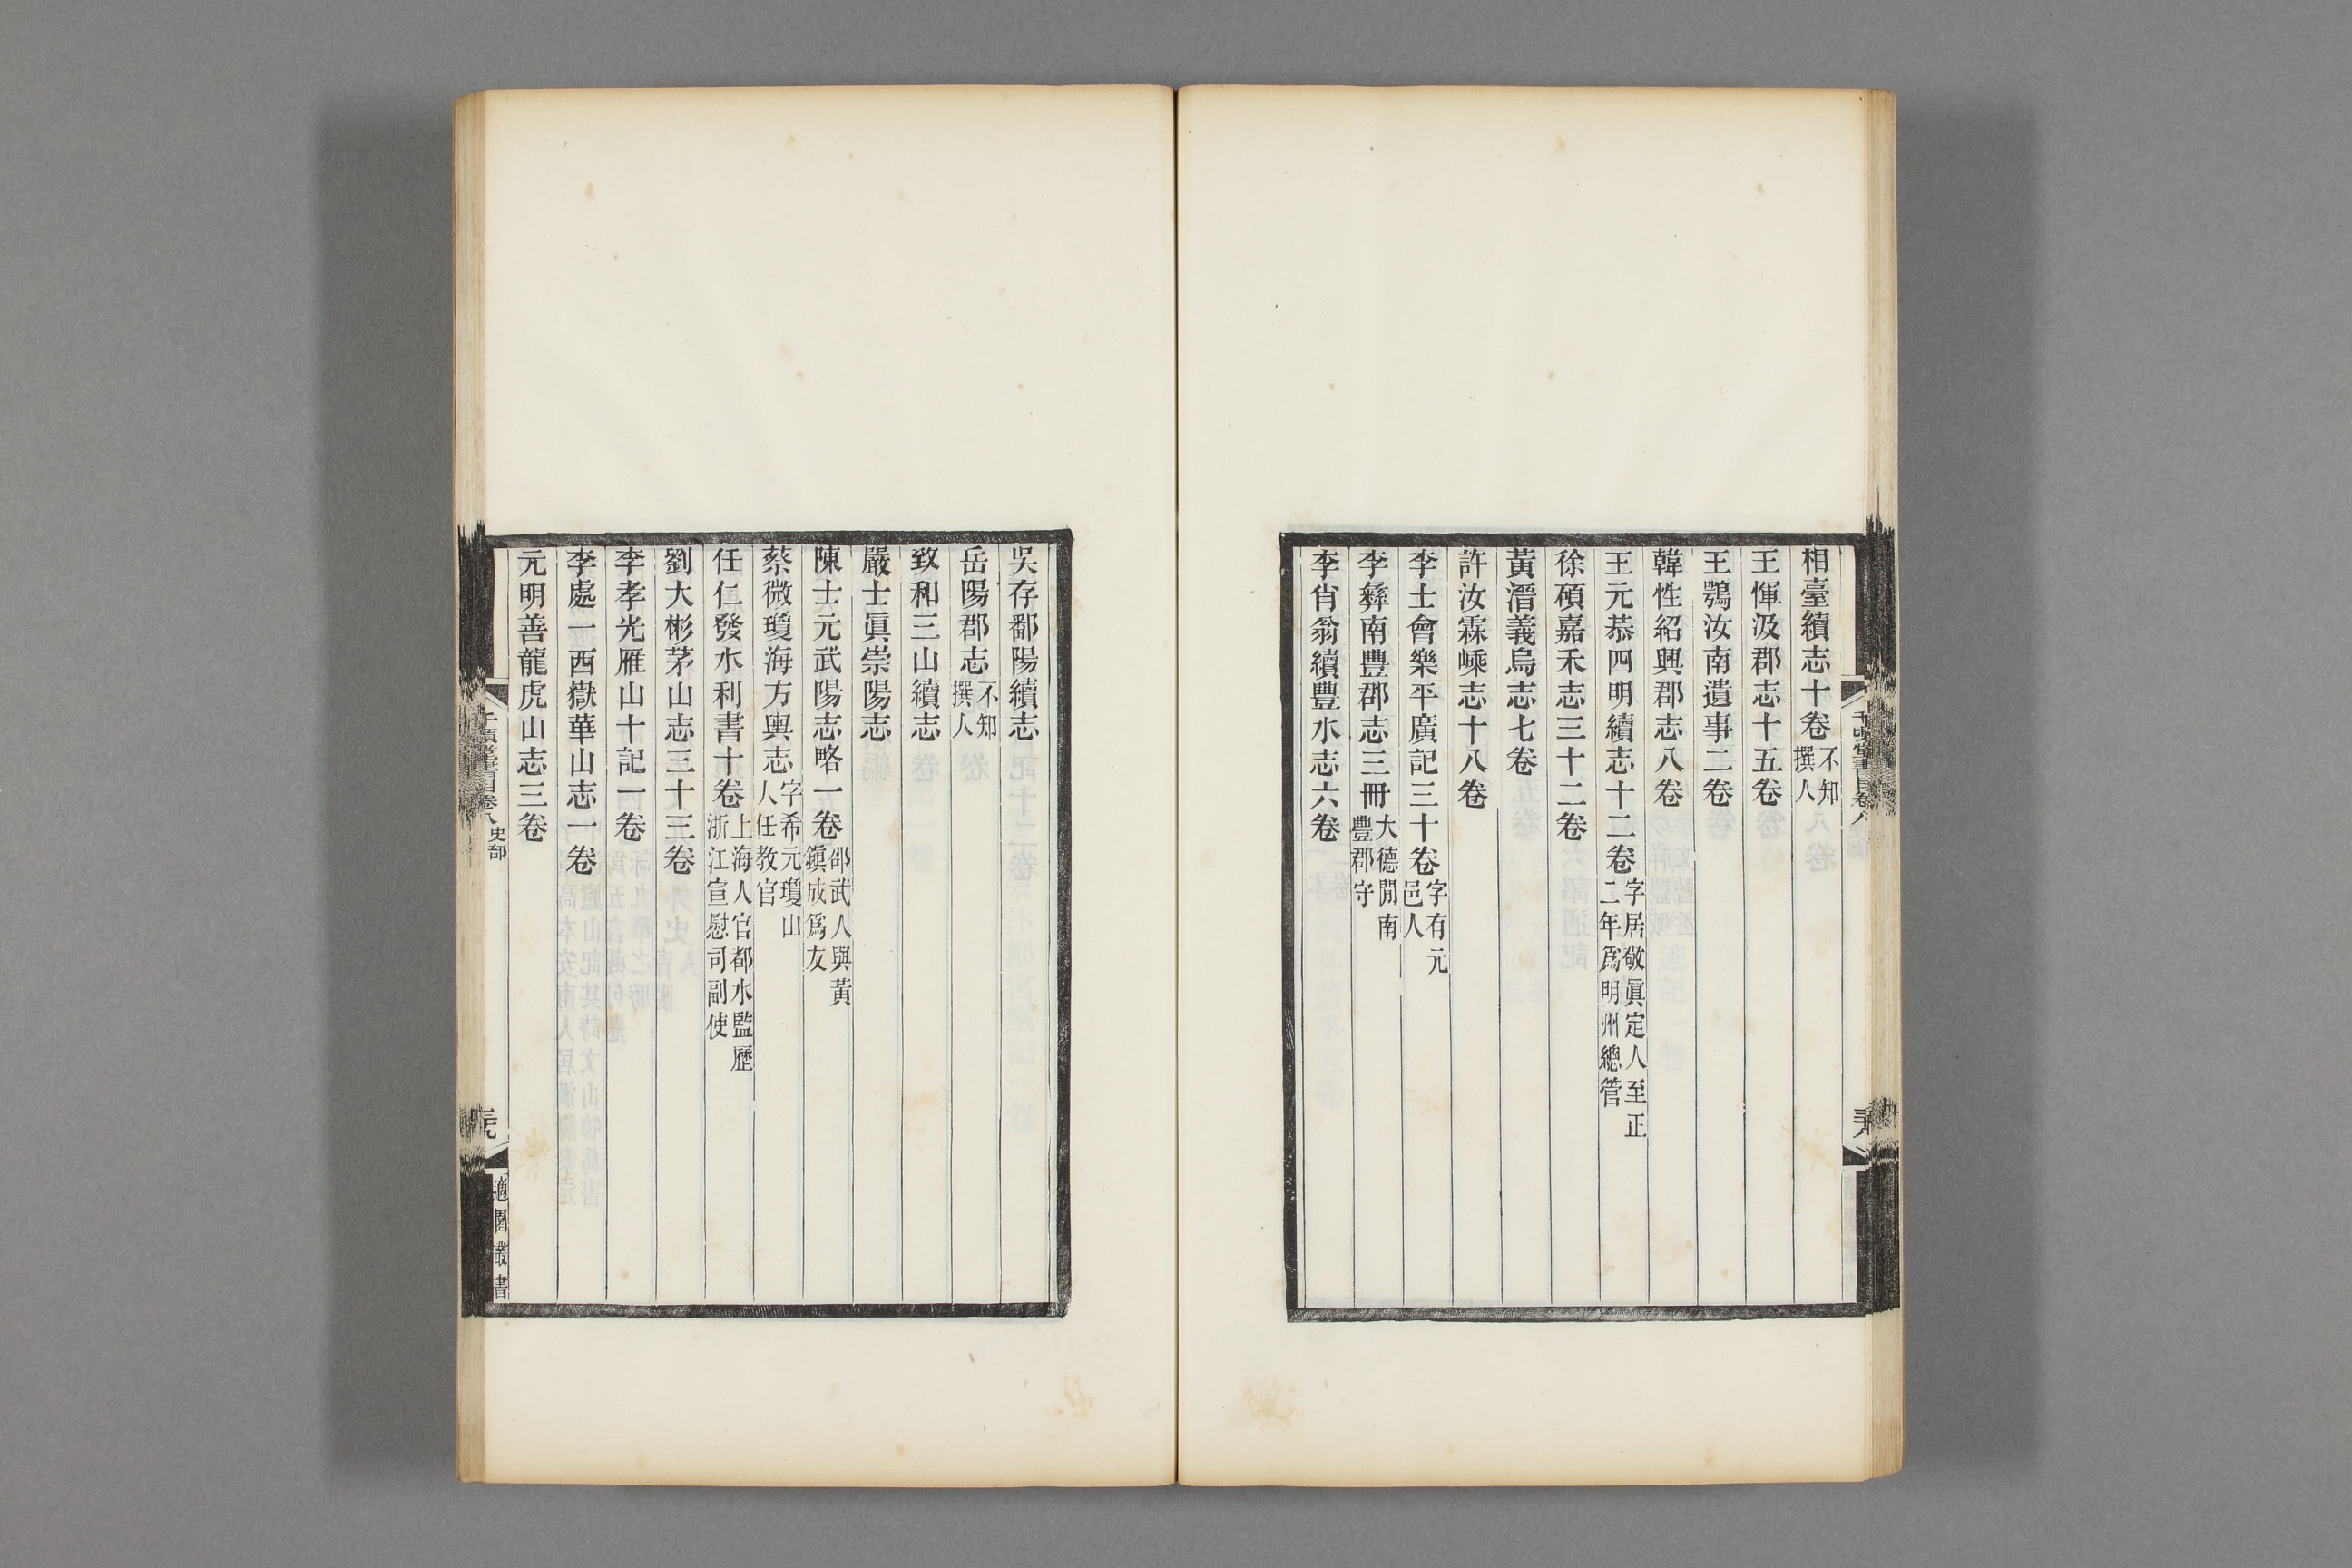 相臺續志十卷不知撰人
王惲汲郡志十五卷
王鶚汝南遺事二卷
韓性紹興郡志八卷
王元恭四明續志十二卷字居敬眞定人至正二年爲明州總管
徐碩嘉禾志三十二卷
黃溍義烏志七卷
許汝霖嵊志十八卷
李士會樂平廣記三十卷字有元邑人
李彝南豐郡志三冊大德閒南豐郡守
李肖翁續豐水志六卷
吳存鄱陽續志
岳陽郡志不知撰人
致和三山續志
嚴士眞崇陽志
陳士元武陽志略一卷邵武人與黃鎮成爲友
蔡微瓊海方輿志字希元瓊山人任教官
任仁發水利書十卷上海人官都水監歷浙江宣慰司副使
劉大彬茅山志三十三卷
李孝光雁山十記一卷
李處一西嶽華山志一卷
元明善龍虎山志三卷
千頃堂書目卷八 史部
適園叢書